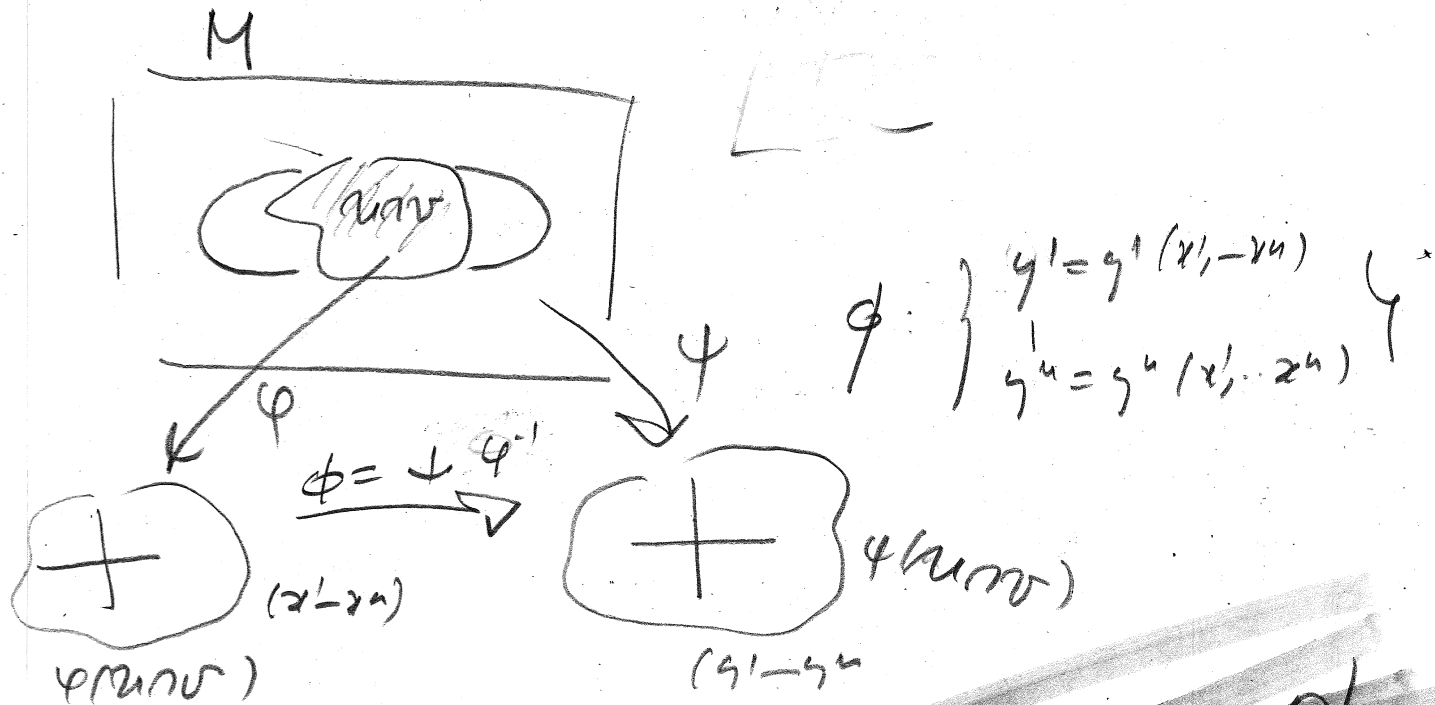 M
U∩V
φ
ψ
ϕ = ψ φ⁻¹
ϕ : { y¹ = y¹ (x¹, – xⁿ)
yⁿ = yⁿ (x¹, ·· xⁿ)
(x¹ – xⁿ)
φ(U∩V)
ψ(U∩V)
(y¹ – yⁿ